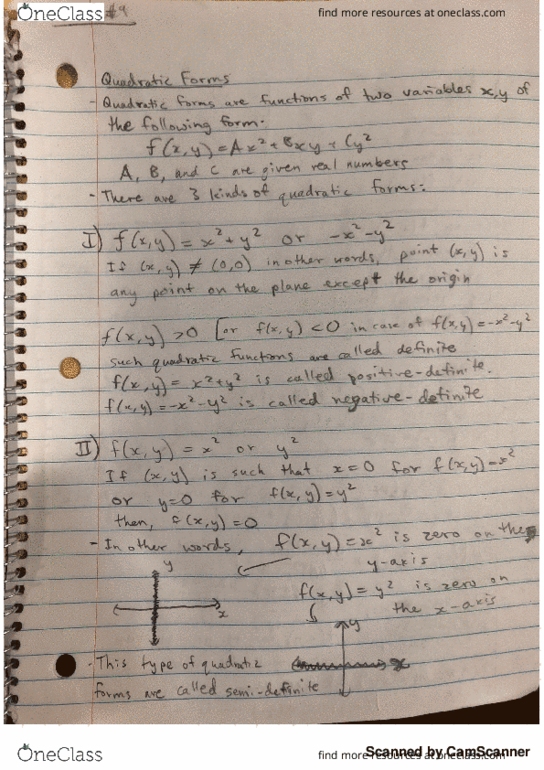 OneClass #9
find more resources at oneclass.com
Quadratic Forms
- Quadratic forms are functions of two variables x,y of
the following form:
f(x,y) = Ax² + Bxy + Cy²
A, B, and C are given real numbers
- There are 3 kinds of quadratic forms:
I) f(x,y) = x² + y² or -x² - y²
If (x,y) ≠ (0,0) in other words, point (x,y) is
any point on the plane except the origin
f(x,y) > 0 [or f(x,y) < 0 in case of f(x,y) = -x² - y²
such quadratic functions are called definite
f(x,y) = x² + y² is called positive-definite.
f(x,y) = -x² - y² is called negative-definite
II) f(x,y) = x² or y²
If (x,y) is such that x=0 for f(x,y) = x²
or y=0 for f(x,y) = y²
then, f(x,y) = 0
- In other words, f(x,y) = x² is zero on the
y-axis
f(x,y) = y² is zero on
the x-axis
y
x
y
x
- This type of quadratic
forms are called semi-definite
OneClass
find more resources at oneclass.com
Scanned by CamScanner